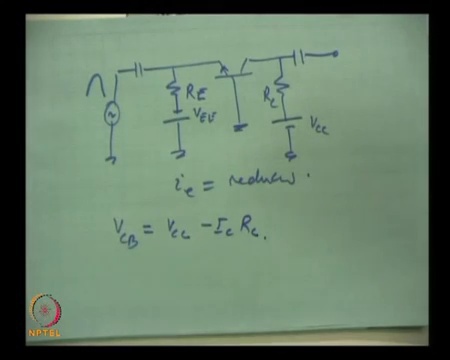 RE
VEE
RC
VCC
ie = reduces.
VCB = VCC - IC RC.
NPTEL